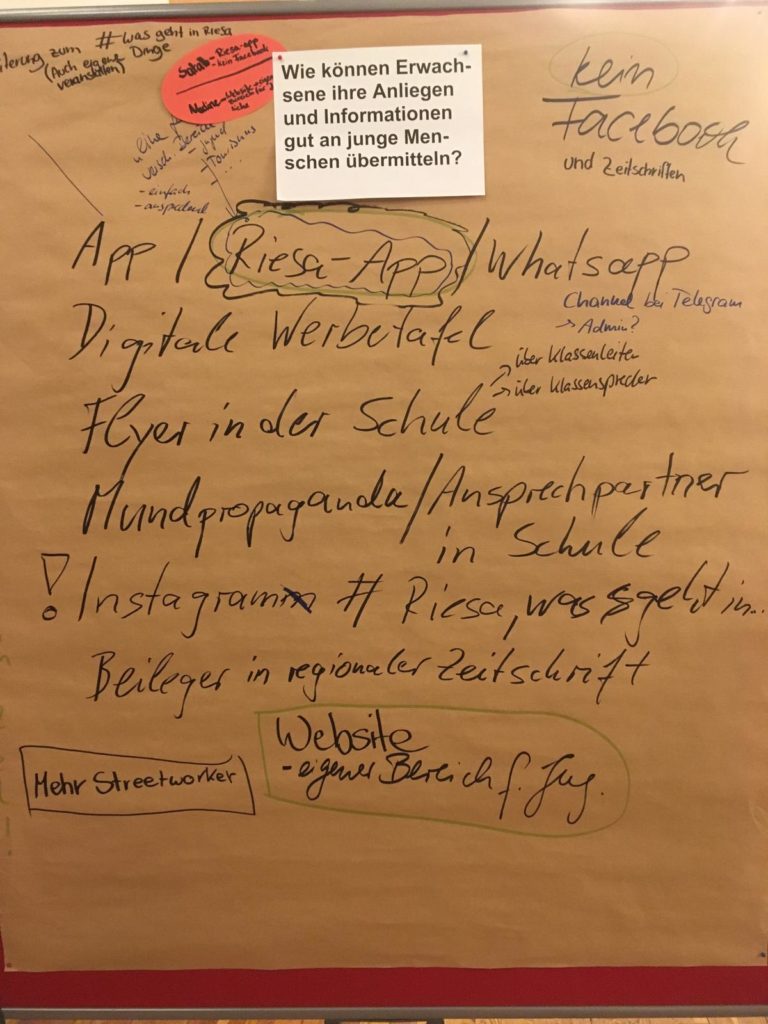 # was geht in Riesa
zum
(Auch eigene Dinge
veranstalten)
- Riesa-app
- kein Facebook
Wie können Erwach-
sene ihre Anliegen
und Informationen
gut an junge Men-
schen übermitteln?
kein
Facebook
und Zeitschriften
versch. Bereiche
- Jugend
- Tourismus
- ...
- einfach
- ansprechend
App / Riesa-App / Whatsapp
Channel bei Telegram
→ Admin?
Digitale Werbetafel
→ über Klassenleiter
→ über Klassensprecher
Flyer in der Schule
Mundpropaganda / Ansprechpartner
in Schule
! Instagram # Riesa, was geht in...
Beileger in regionaler Zeitschrift
Website
- eigener Bereich f. Jug.
Mehr Streetworker